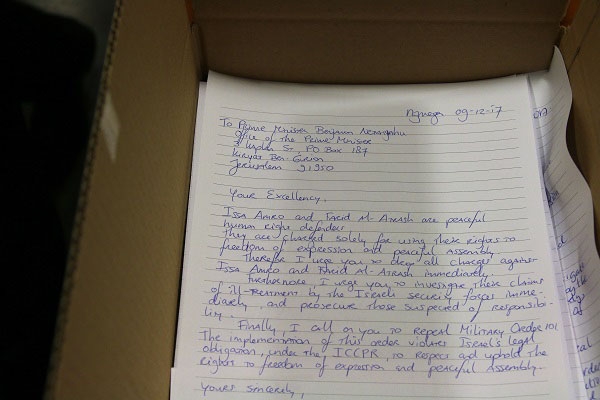 09-12-17
To Prime Minister Benjamin Netanyahu
Office of the Prime Minister
3 Kaplan St. PO Box 187
Kiryat Ben-Gurion
Jerusalem 91950
Your Excellency,
Issa Amro and Farid Al-Atrash are peaceful
human right defenders
They are charged solely for using their rights to
freedom of expression and peaceful Assembly
Therefor I urge you to drop all charges against
Issa Amro and Farid Al-Atrash immediately.
Furthermore I urge you to investigate their claims
of ill-treatment by the Israeli security forces imme-
diately, and prosecute those suspected of responsibi-
lity.
Finally, I call on you to repeal Military Order 101
The implementation of this order violates Israel's legal
obligation, under the ICCPR, to respect and uphold the
rights to freedom of expression and peaceful Assembly.
Yours sincerely,